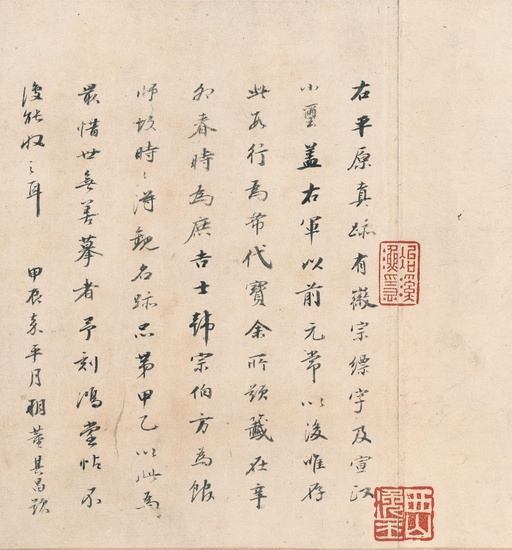 右平原真跡有徽宗縹字及宣政
小璽蓋右軍以前元常以後唯存
此數行為希代寶余所題籤在辛
卯春時為庶吉士韓宗伯方為館
師故時時得觀名跡品第甲乙以此為
最惜世無善摹者予刻鴻堂帖不
復能收之耳 甲辰嘉平月朔董其昌跋
治溪漁隱
西山逸士